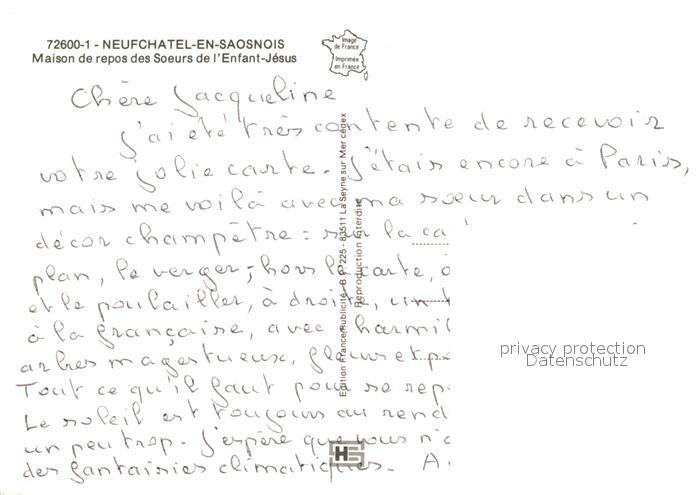 72600-1 - NEUFCHATEL-EN-SAOSNOIS
Maison de repos des Soeurs de l'Enfant-Jésus
Image
de France
Imprimée
en France
Chère Jacqueline
J'ai été très contente de recevoir
votre jolie carte. J'étais encore à Paris,
mais me voilà avec ma sœur dans un
décor champêtre : sur la ca
plan, le verger ; hors la carte,
et le poulailler, à droite, un
à la française, avec charmil
arbres magestueux, fleurs et
Tout ce qu'il faut pour se rep
Le soleil est toujours au rend
un peu trop. J'espère que vous n'a
des fantaisies climatiques. A
Edition France Publicité - B.P. 225 - 83511 La Seyne sur Mer cedex
Reproduction Interdite
privacy protection
Datenschutz